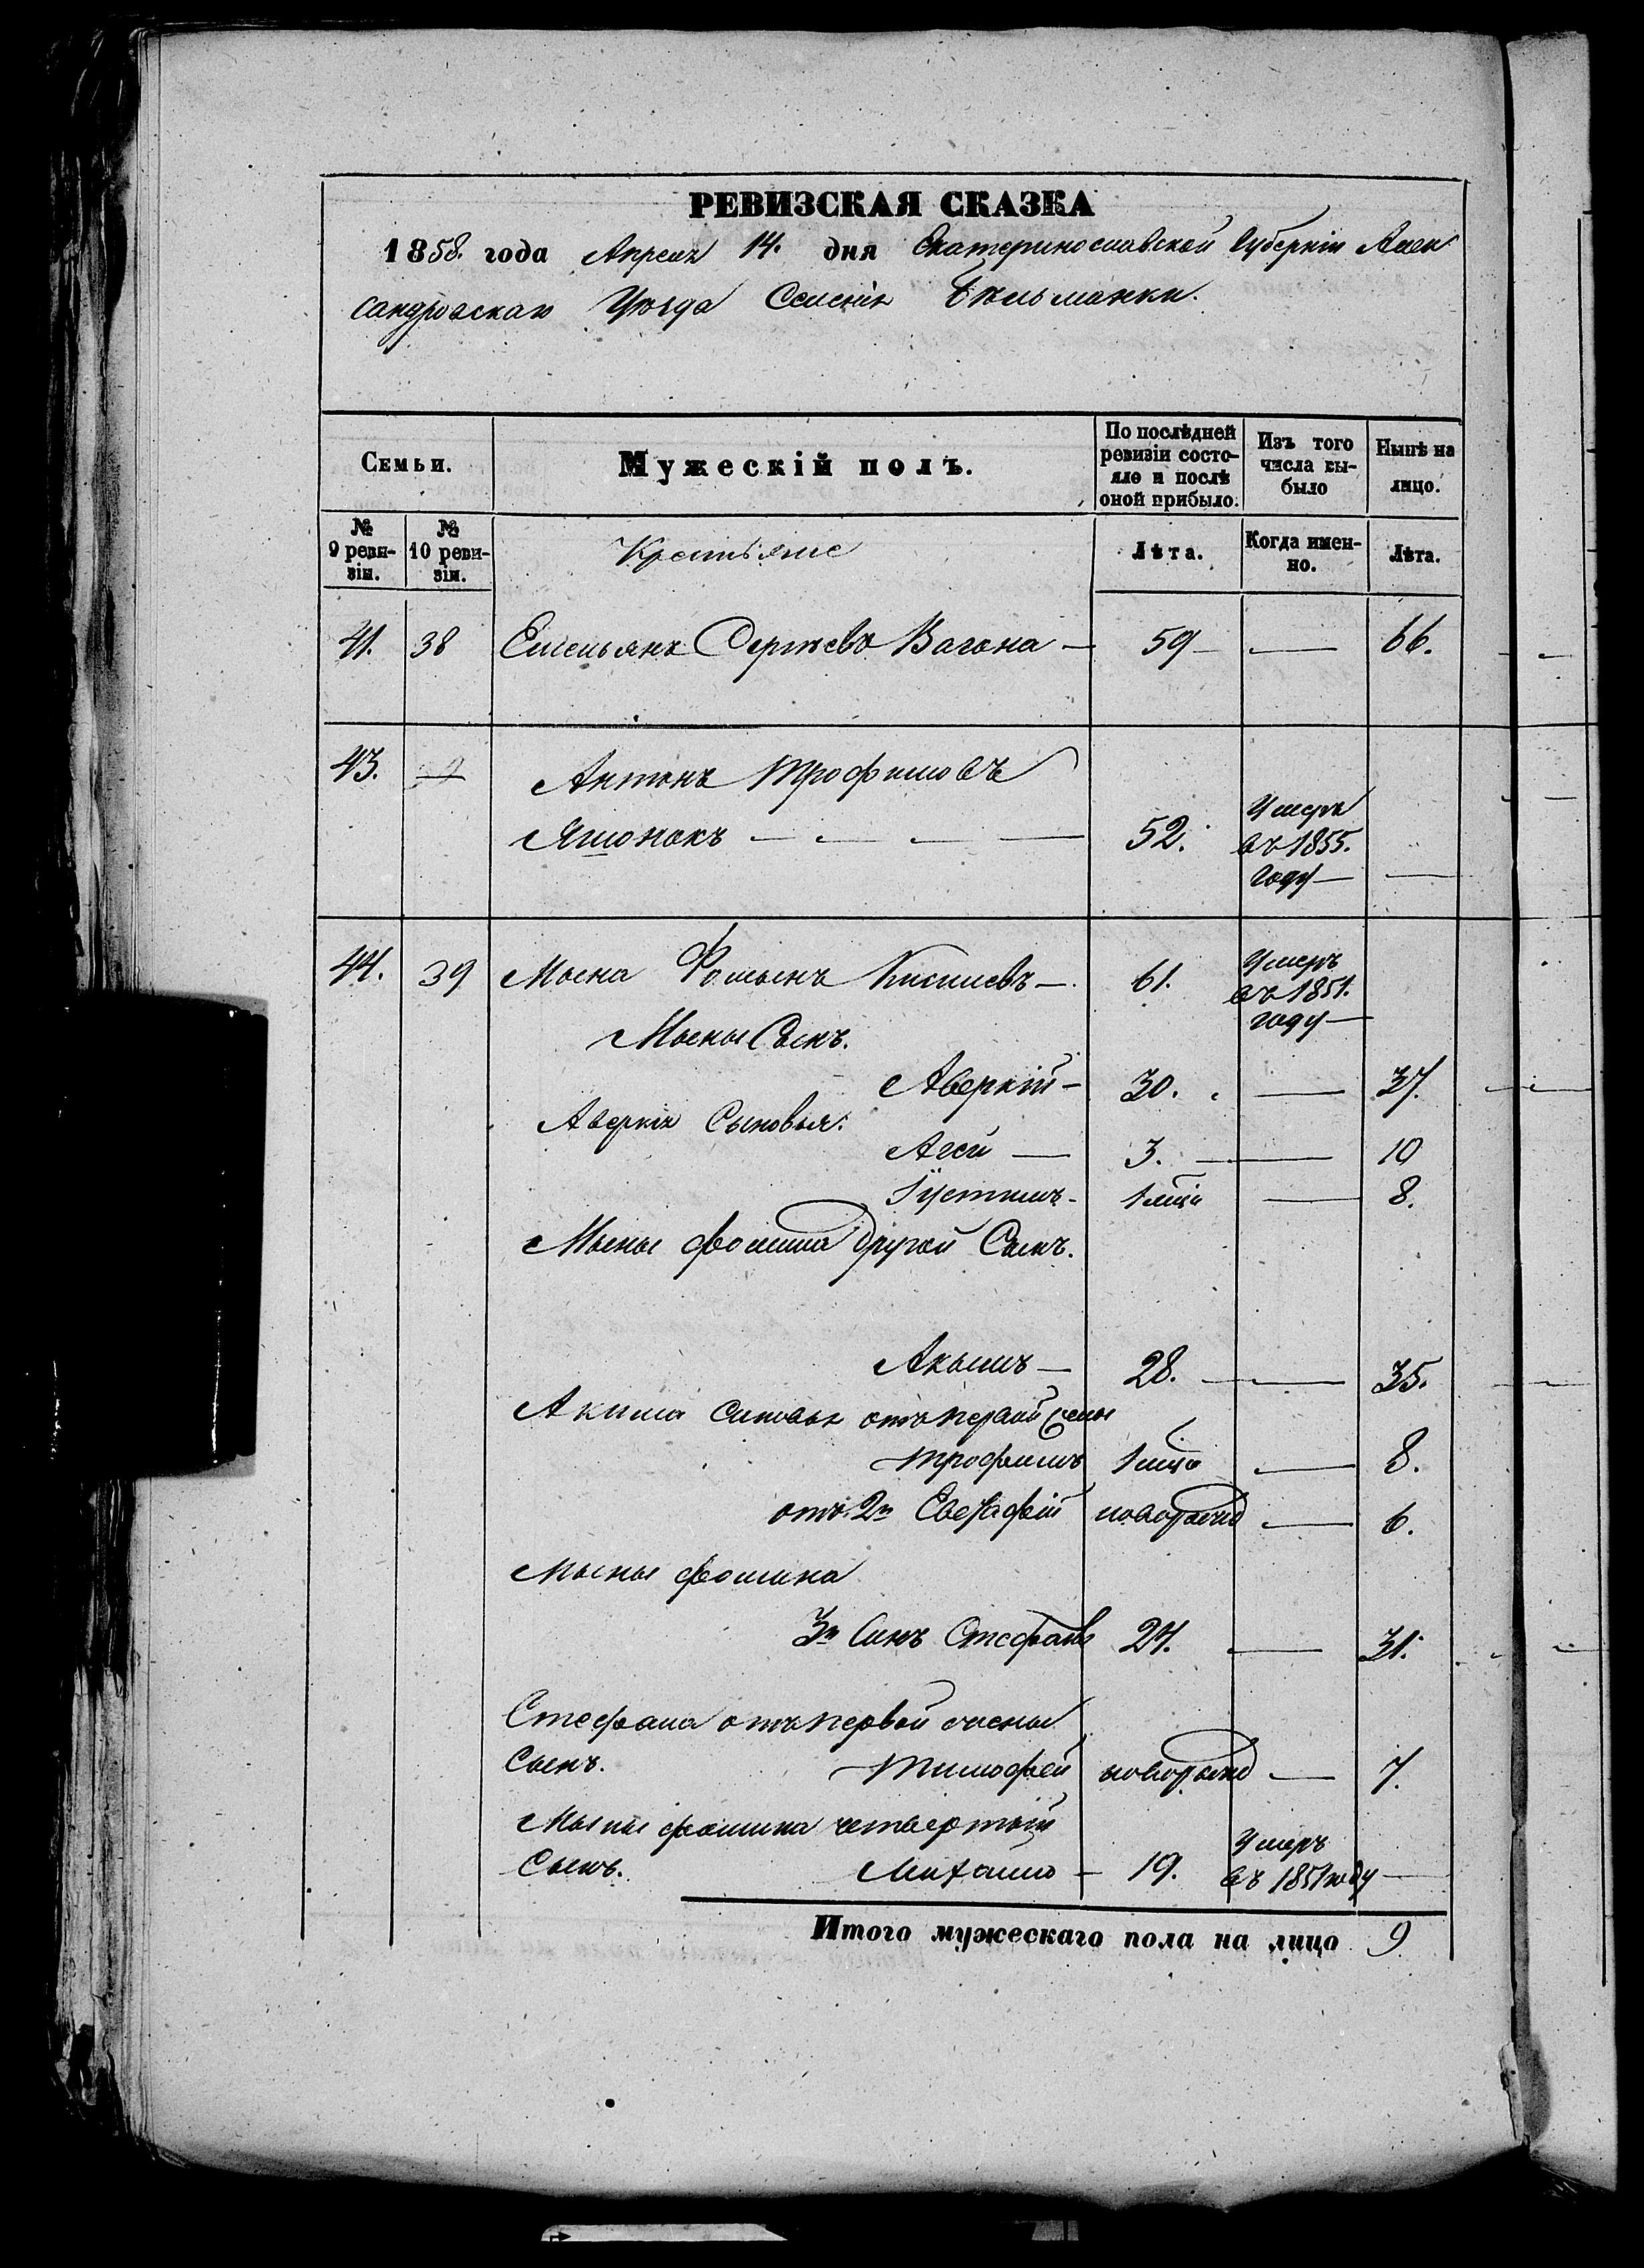 РЕВИЗСКАЯ СКАЗКА
1858. года Апреля 14. дня Екатеринославской Губерніи Алек
сандровскаго Уѣзда Селенія Бѣльманки.
Семьи.
Мужескій полъ.
По послѣдней ревизіи состояло и послѣ оной прибыло.
Изъ того числа выбыло
Нынѣ на лицо.
№ 9 ревизіи.
№ 10 ревизіи.
Крестьяне
Лѣта.
Когда именно.
Лѣта.
41. 38 Емельянъ Сергѣевъ Вагона — 59 — — 66.
43. Антонъ Трофимовъ
52. Умеръ
въ 1855.
году — —
44. 39 Мысна Фоминъ — 61. Умеръ
въ 1851.
году —
Мысны Сынъ.
Аверкій — 30. — 37.
Аверкія Сыновья:
Агей — 3. — 10
Іустимъ — 1 мѣца — 8.
Мысны Фомина другой Сынъ.
Акымъ — 28. — 35.
Акима сыновья отъ первой жены
Трофимъ 1 мѣца — 8.
отъ 2й Евстафій новорожд — 6.
Мысны Фомина
3й Сынъ Стефанъ 24. — 31.
Стефана отъ первой жены
Сынъ. Тимофей новорожд — 7.
Мысны Фомина четвертый
Сынъ. Михайло — 19. Умеръ
въ 1851 году —
Итого мужескаго пола на лицо 9